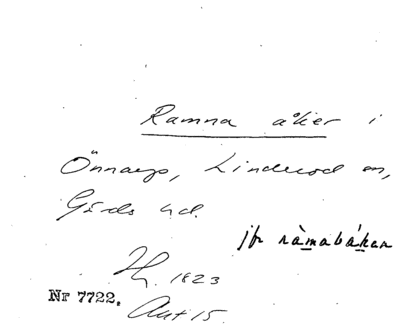 Ramna åker i
Önnarp, Linderöd sn,
Gärds hd.
jfr ràmabákan
H. 1823
Nr 7722.
Aut 15.